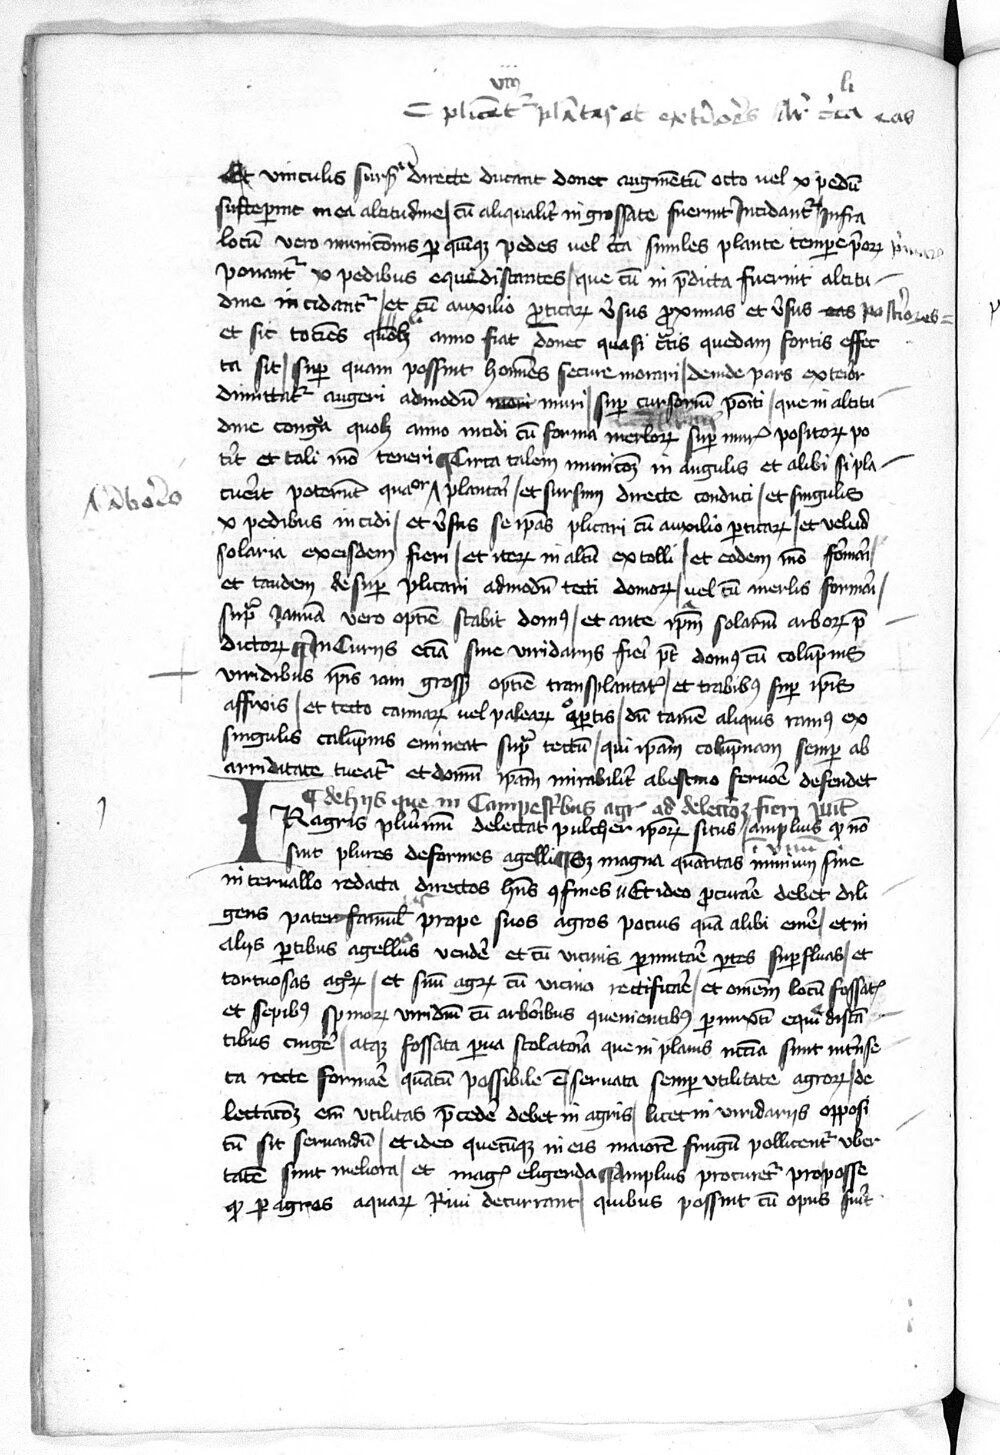 viij li
plicent~ plātas et exti͛ores
Et vinculis sursū directe ducant donec augmētū octo uel x pedū
susceperint in ea altitudine / cū aliqualit͛ ingrossate fuerint Incidant~ Infra
locū vero municōnis p̱ quīqꝫ pedes uel similes plante tempe p̄orꝝ
ponant~ x pedibus equedistantes / que cū in p̄dicta fuerint altitu
dine incidant~ / et cū auxilio p̱ticarꝝ v͛sus ꝓximas et v͛sus eas post͛iores
et sic tociēs quolꝫ anno fiat donec quasi c͛tis quedam fortis effec
ta sit / sup̱ quam possint hoīnes secure morari / deinde pars exterior
dimittat~ augeri admodū muri / sup̱ cursoriū pōiti / que in altitu
dine congͣa quolꝫ anno incidi cū forma merlorꝝ sup̱ muꝝ positorꝝ po
t͛it et tali mō teneri ¶ Circa talem municōꝫ in angulis et alibi si pla
cuerit poterūt quaor plantari / et sursum directe conduci / et singulis
x pedibus incidi / et v͛sus se ip̄as plicari cū auxilio p̱ticarꝝ / et velud
solaria exeisdem fieri / et iterꝝ in altū extolli / et eodem mō formari /
et tandem desup̱ plicari admodū tecti domorꝝ / uel cū merlis formari /
supͣ Januā vero optīe stabit domꝰ / et ante ip̄m solariū arborꝝ p̄
dictorꝝ ¶ In Curijs eciā siue viridarijs fieri p̄t domꝰ cū colūpnis
viridibus ip̄is iam grossꝭ optīe transplantatꝭ / et trabibꝰ sup̱ ip̄is
affixis / et tecto cannarꝝ uel palearꝝ oꝑtis / dū tamē aliquis ramꝰ ex
singulis colūpnis emineat supͣ tectū / qui ip̄am colūpnam semp̱ ab
arriditate tueat~ et domū ip̄am mirabilit͛ ab estiuo feruore defendet
¶ de hijs que in Campestribus agr̄ ad delectōꝫ fieri
I Ragris plurimū delectat pulcher ip̄orꝝ situs / amplius ꝙ nō
sint plures deformes agelli ¶ Sꝫ magna quātitas in vnum siue
interuallo redacta directos hn̄s ꝯfines // Et ideo ꝓcurare debet dili
gens pater famil̄ prope suos agros potius quā alibi emere / et in
alijs p̱tibus agellos vendere et cū vicinis p̱mutare p̱tes sup̱fluas / et
tortuosas agrorꝝ / et suū agrꝝ cū vicino rectificare / et omēm locū fossatꝭ
et sepibꝰ spinorꝝ viridiū cū arboribus quenientibꝰ p̱mixti equedistā
tibus cingere / atqꝫ fossata p̱ua scolatoria que in planis nccīa sunt intense
ta recte formare quātū possibile ē / seruata semp̱ vtilitate agrorꝝ / de
lectatōꝫ em̄ vtilitas p̄cedere debet in agris / licet in viridarijs opposi
tū sit seruandū / et ideo quecūqꝫ in eis maiorē frugū pollicent~ vber
tatē sint meliora / et magꝭ eligenda ¶ Amplius procuret~ pro posse
ꝙ p̱ agros aquarꝝ Riui decurrant / quibus possint cū opus fuerit